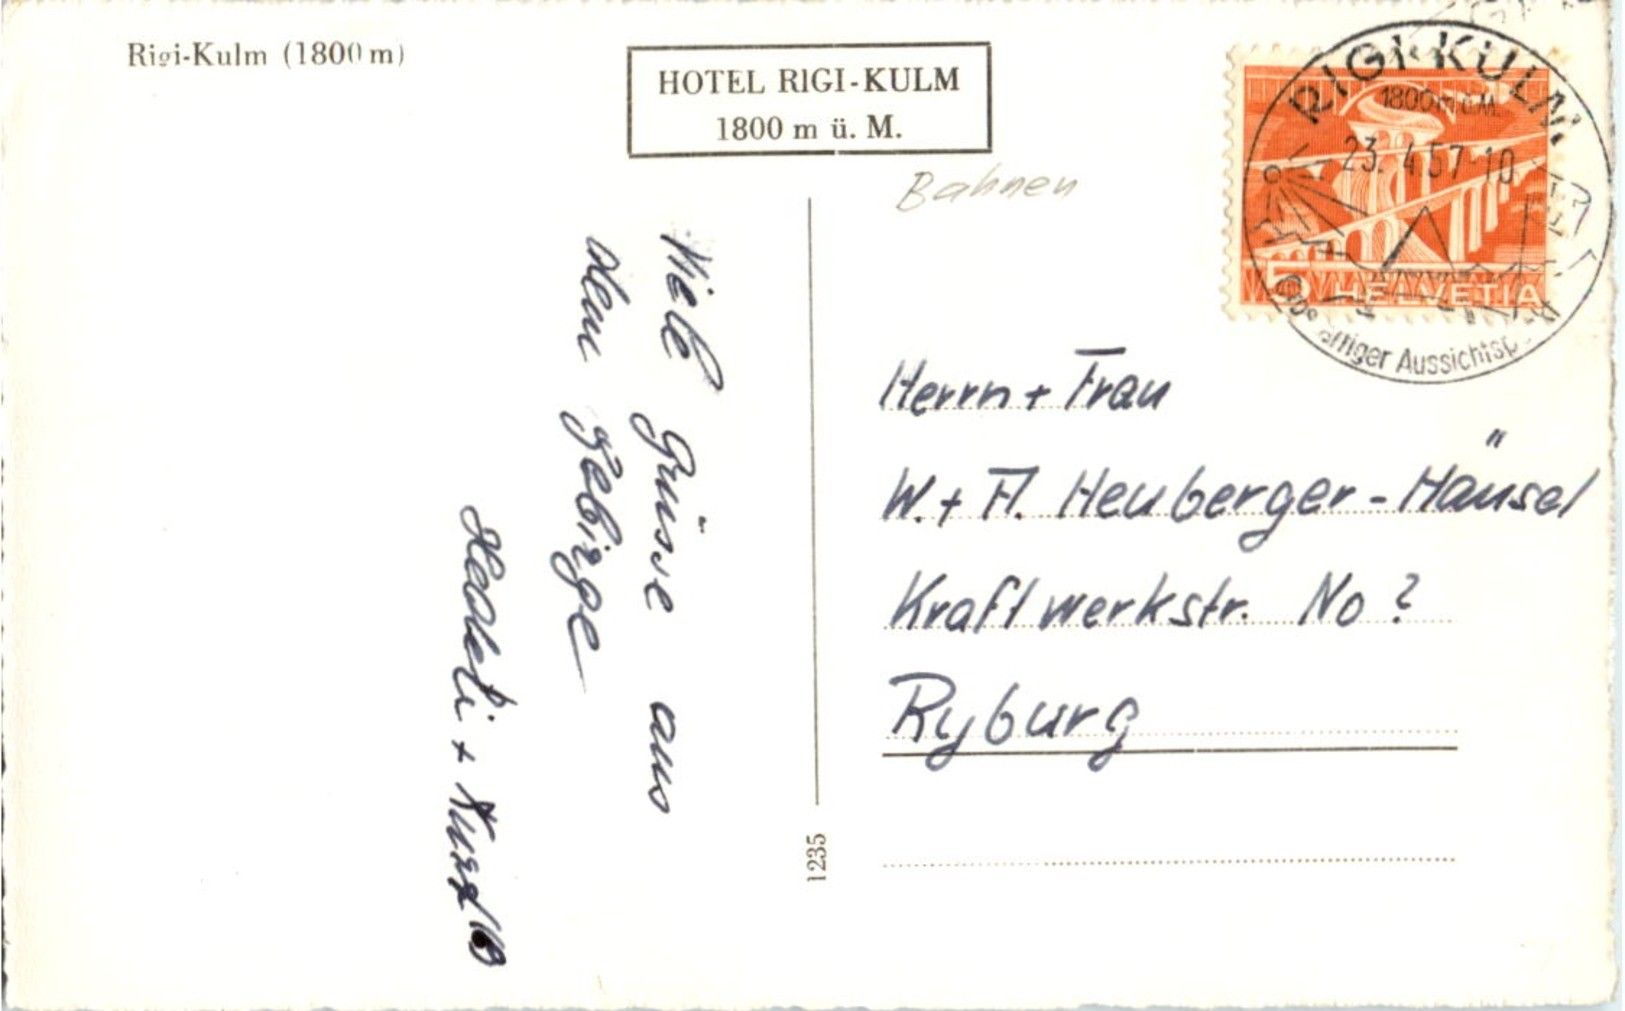 Rigi-Kulm (1800 m)
HOTEL RIGI-KULM
1800 m ü. M.
Bahnen
RIGI-KULM
1800 m ü.M.
23. 4.57-10
5 HELVETIA
artiger Aussichtsp
Viele Grüsse aus
dem Gebirge
Hedeli +
Herrn + Frau
W. + A. Heuberger - Häusel
Kraftwerkstr. No ?
Ryburg
1235